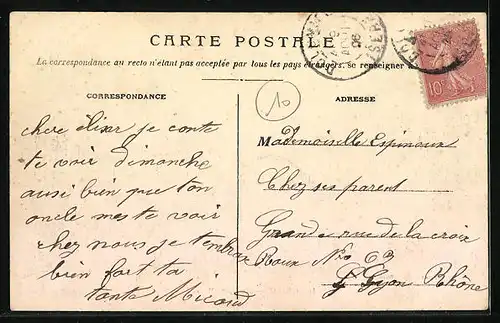 CARTE POSTALE
La correspondance au recto n'étant pas acceptée par tous les pays étrangers, se renseigner à
CORRESPONDANCE
ADRESSE
10
10
chere élixr je conte
te voir dimanche
ausi bien que ton
oncle mes te voir
chez nous je tembras
bien fort ta
tante Micard
Mademoiselle Espinoux
Chez ses parent
Grande rue de la croix
Roux No 63
Lyon Rhône